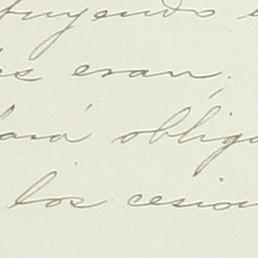 tuyendo
s eran,
ará obliga
los cesion